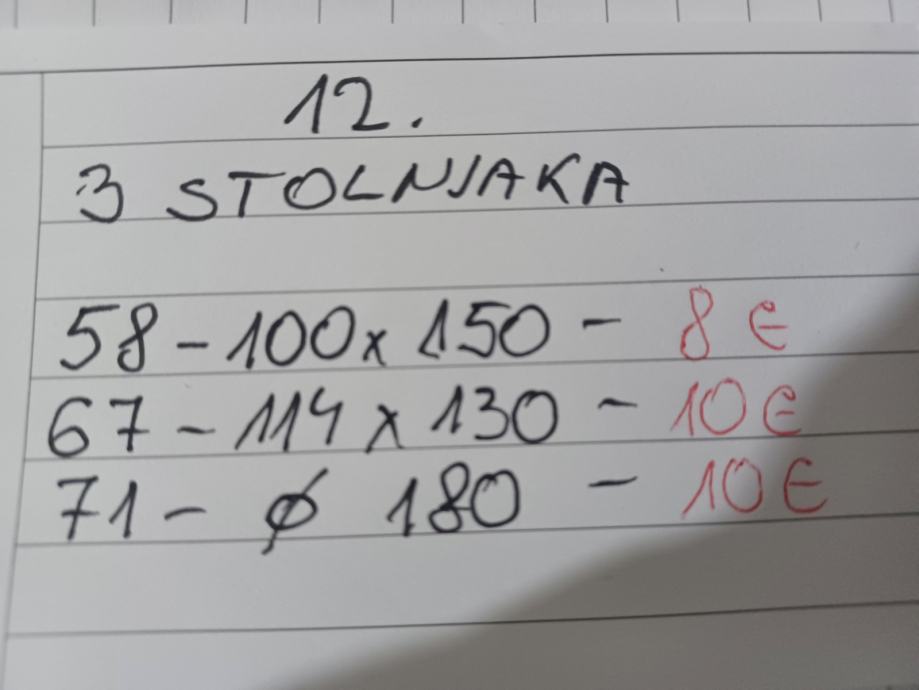 12.
3 STOLNJAKA
58 - 100 x 150 - 8 €
67 - 114 x 130 - 10 €
71 - ø 180 - 10 €